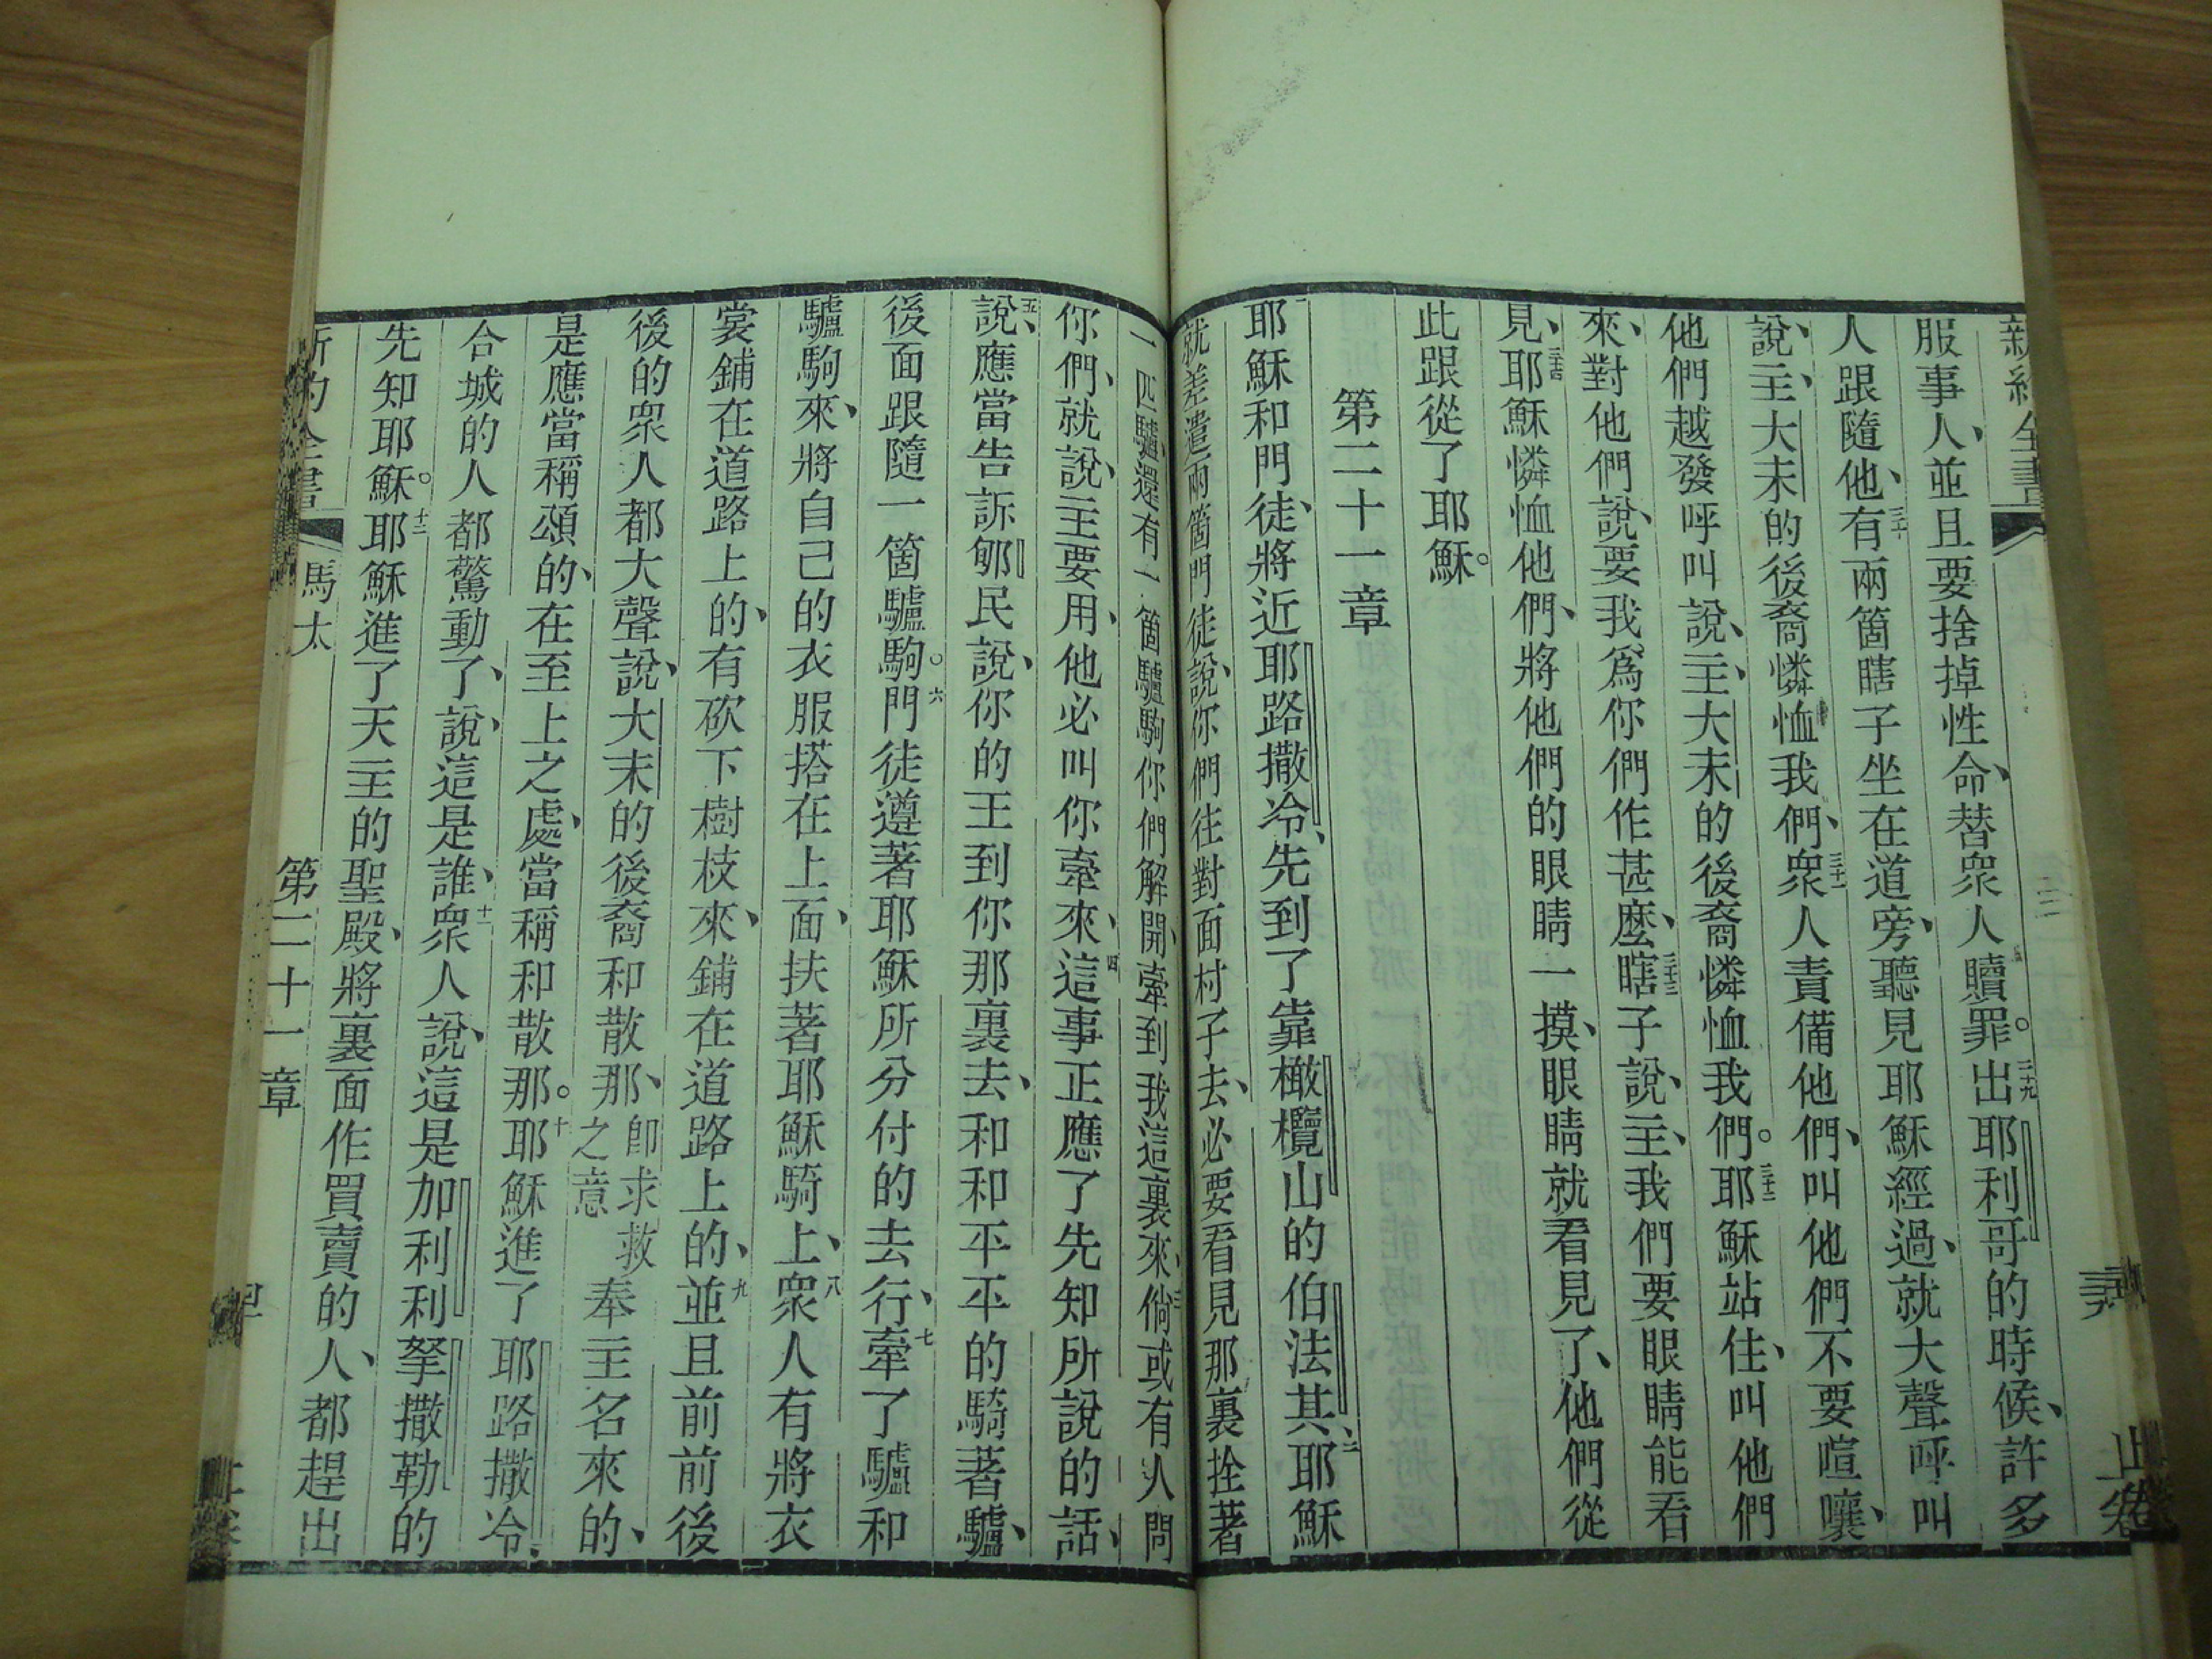 新約全書
服事人、並且要捨掉性命、替衆人贖罪。二十九出耶利哥的時候、許多
人跟隨他、三十有兩箇瞎子坐在道旁、聽見耶穌經過、就大聲呼叫
說、主、大未的後裔憐恤我們、三十一衆人責備他們、叫他們不要喧嚷、
他們越發呼叫說、主、大未的後裔憐恤我們。三十二耶穌站住、叫他們
來、對他們說、要我爲你們作甚麼、三十三瞎子說、主、我們要眼睛能看
見、三十四耶穌憐恤他們、將他們的眼睛一摸、眼睛就看見了、他們從
此跟從了耶穌。
第二十一章
一耶穌和門徒、將近耶路撒冷、先到了靠橄欖山的伯法其、二耶穌
就差遣兩箇門徒、說、你們往對面村子去、必要看見那裏拴著
一匹驢、還有一箇驢駒、你們解開、牽到我這裏來、三倘或有人問
你們、就說、主要用、他必叫你牽來、四這事正應了先知所說的話、
五說、應當告訴郇民說、你的王到你那裏去、和和平平的騎著驢、
後面跟隨一箇驢駒。六門徒遵著耶穌所分付的去行、七牽了驢和
驢駒來、將自己的衣服搭在上面、扶著耶穌騎上、八衆人有將衣
裳鋪在道路上的、有砍下樹枝來、鋪在道路上的、九並且前前後
後的衆人都大聲說、大未的後裔和散那、卽求救之意奉主名來的、
是應當稱頌的、在至上之處、當稱和散那。十耶穌進了耶路撒冷、
合城的人都驚動了、說、這是誰、十一衆人說、這是加利利拏撒勒的
先知耶穌。十二耶穌進了天主的聖殿、將裏面作買賣的人、都趕出
新約全書 馬太 第二十一章